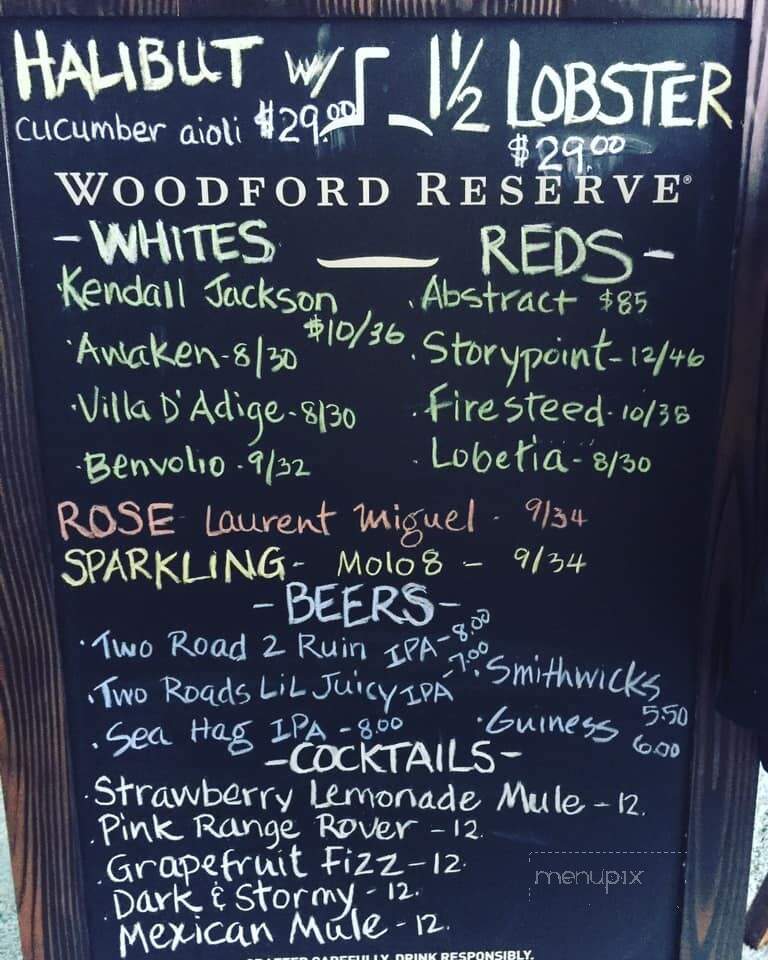 HALIBUT w/
cucumber aioli $29.00
1½ LOBSTER
$29.00
WOODFORD RESERVE®
- WHITES
Kendall Jackson
$10/36
· Awaken - 8/30
· Villa D'Adige - 8/30
· Benvolio - 9/32
REDS -
· Abstract $85
· Storypoint - 12/46
· Firesteed - 10/38
· Lobetia - 8/30
ROSE Laurent Miguel - 9/34
SPARKLING - Molo 8 - 9/34
- BEERS -
· Two Road 2 Ruin IPA - 8.00
· Two Roads LiL Juicy IPA - 7.00
· Sea Hag IPA - 8.00
· Smithwicks
5.50
· Guiness
6.00
- COCKTAILS -
· Strawberry Lemonade Mule - 12.
· Pink Range Rover - 12.
· Grapefruit Fizz - 12.
· Dark & Stormy - 12.
· Mexican Mule - 12.
menupix
CAREFULLY. DRINK RESPONSIBLY.